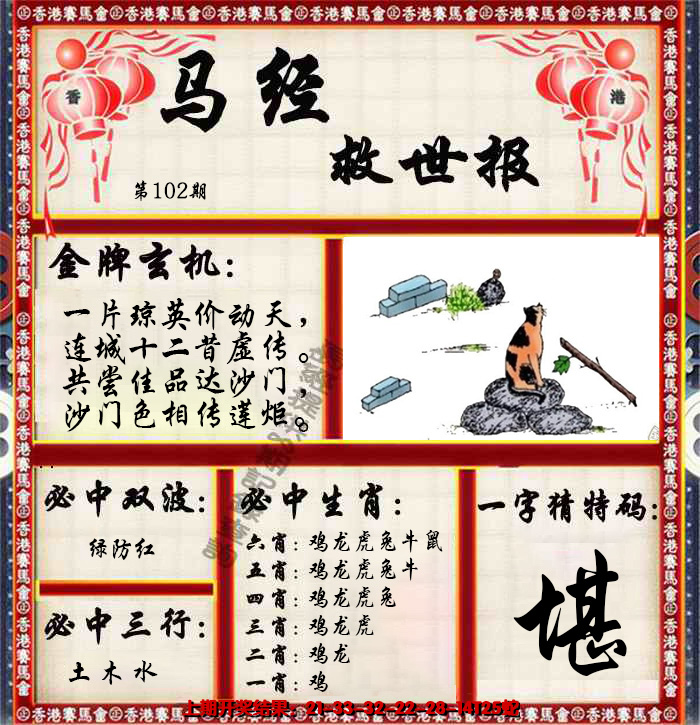 香港賽馬會
香
港
马经
救世报
第102期
金牌玄机：
一片琼英价动天，
连城十二昔虚传。
共尝佳品达沙门，
沙门色相传莲炬。
必中双波：
绿防红
必中三行：
土木水
必中生肖：
六肖：鸡龙虎兔牛鼠
五肖：鸡龙虎兔牛
四肖：鸡龙虎兔
三肖：鸡龙虎
二肖：鸡龙
一肖：鸡
一字猜特码：
堪
上期开奖结果：21-33-32-22-28-14T25蛇